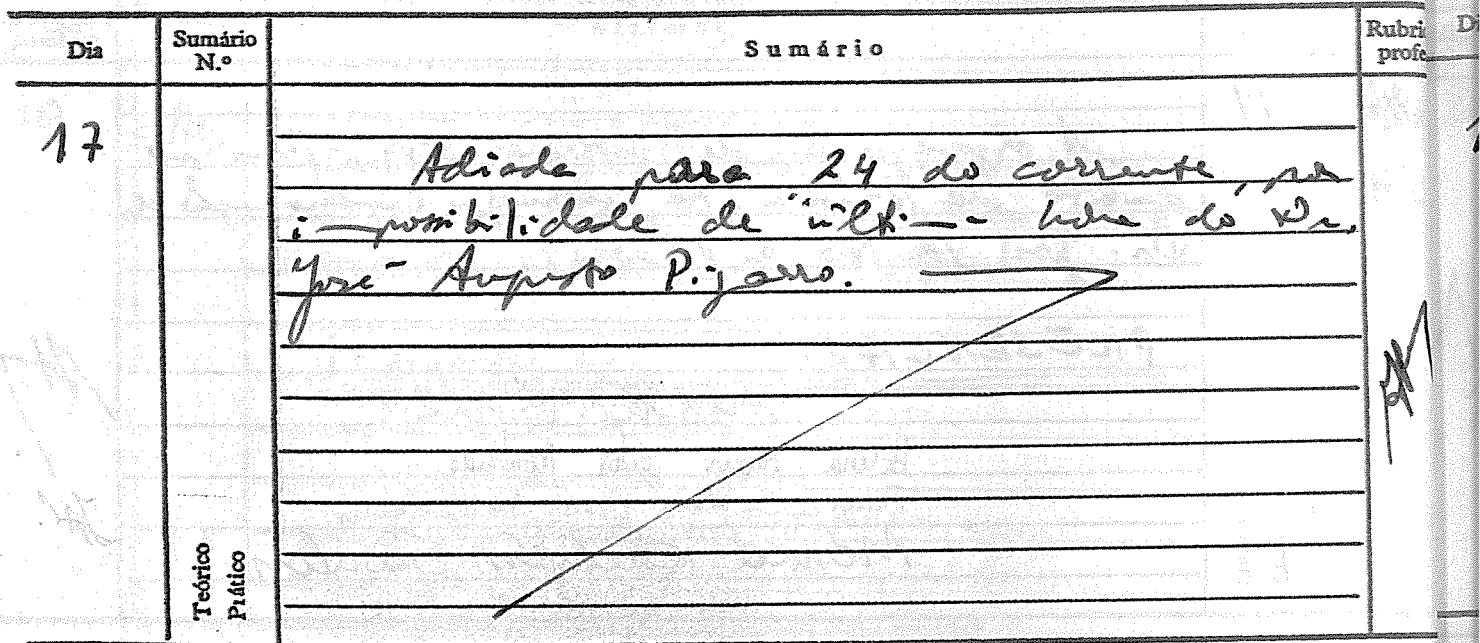 Dia
Sumário
N.º
Sumário
Rubri
profe
17
Adiada para 24 do corrente, por
impossibilidade de última hora do Dr.
José Augusto Pizarro.
Teórico
Prático